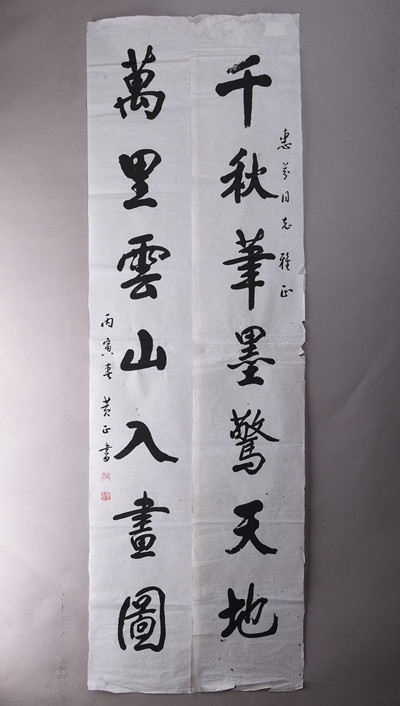 惠芬同志雅正
千秋筆墨驚天地
萬里雲山入畫圖
丙寅春 黄正書